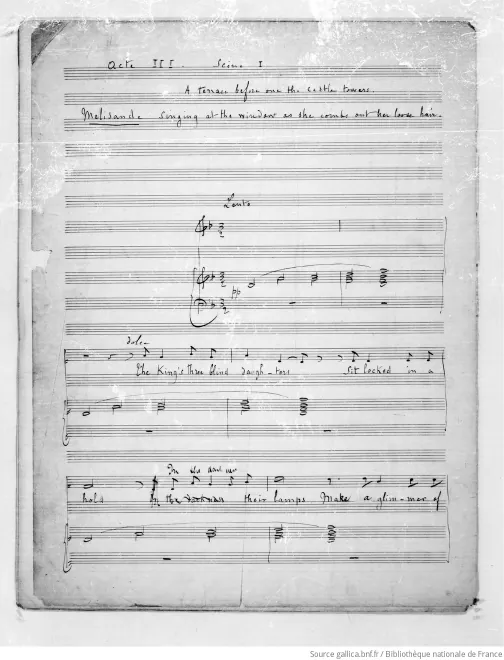 Acte III. Scene I
A terrace before one the castle towers.
Melisande singing at the window as she combs out her loose hair.
Lento
pp
dolce
The King's three blind daugh-ters Sit locked in a
hold
In the darkness their lamps Make a glim-mer of
Source gallica.bnf.fr / Bibliothèque nationale de France